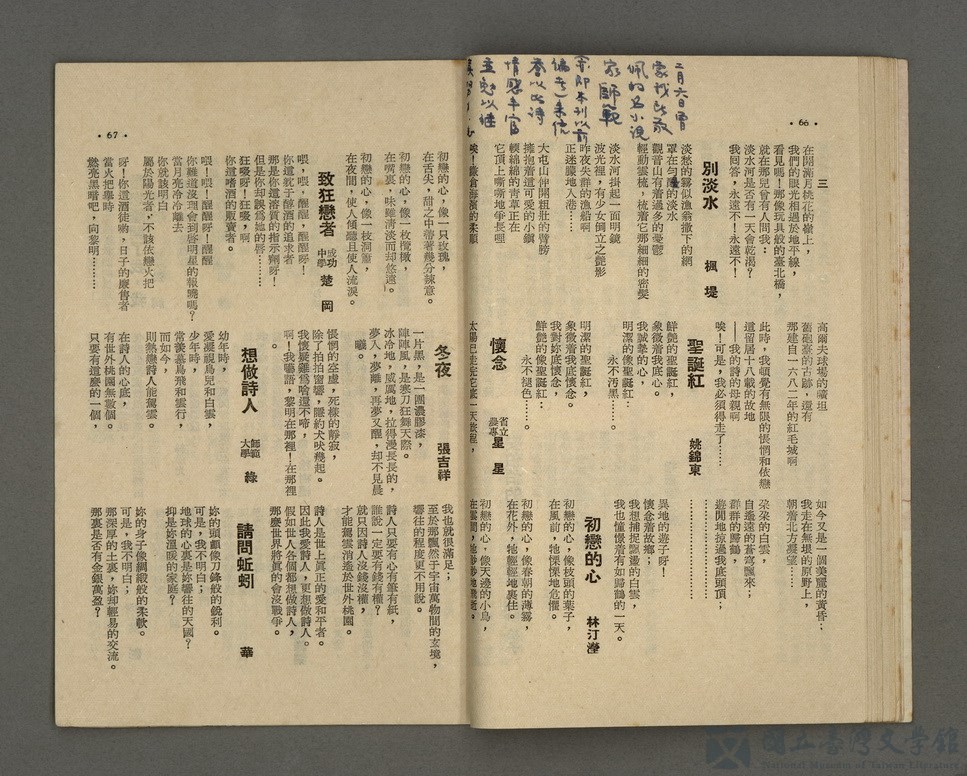 · 66 ·
二月六日曾
三
在開滿月桃花的嶺上，
我們的眼光相遇於地平線，
看見嗎！那像玩具般的臺北橋，
就在那兒曾有人間我：
淡水河是否有一天會乾涸？
我回答，永遠不！永遠不！
別淡水
楓 堤
淡愁的霧似漁翁撒下的網
罩在勻酣的淡水
觀音山有着過多的憂鬱
輕動雲梳，梳着它那細細的密髮
淡水河掛起一面明鏡
波光裡，有少女倒立之艷影
昨夜失群的漁船啊
正迷矇地入港……
大屯山伸開粗壯的臂膀
擁抱着這可愛的小鎮
頓綿綿的青草正在
它頂上嘶嘶地爭長哩
高爾夫球場的曠坦
舊砲臺的古跡，還有
那建自一六八二年的紅毛城啊
此時，我頓覺有無限的悵惘和依戀
這留居十八載的故地
——我的詩的母親啊
唉！可是，我必須得走了……
聖誕紅
姚錦東
鮮艷的聖誕紅，
象徵着我底心。
我誠摯的心，
明潔的像聖誕紅：
永不汚黑……。
明潔的聖誕紅，
象徵着我底懷念。
我對妳底懷念，
鮮艷的像聖誕紅：
永不褪色……。
懷念
省立農專 星 星
太陽已走完它底一天旅程，
如今又是一個美麗的黃昏；
我走在無垠的原野上，
朝着北方凝望……
朶朶的白雲，
自遙遠的蒼穹飄來；
群群的歸鶴，
遊閒地掠過我底頭頂；
異地的遊子呀！
懷念着故鄉；
我想捕捉飄盪的白雲，
我也憧憬着有如歸鶴的一天。
初戀的心
林汀瀅
初戀的心，像枝頭的葉子，
在風前，牠慄慄地危懼。
初戀的心，像春朝的薄霧，
在花外，牠輕輕地裏住。
初戀的心，像天邊的小鳥，
· 67 ·
初戀的心，像一只玫瑰，
在舌尖，甜之中帶著幾分辣意。
初戀的心，像一枚橄欖，
在嘴裏，味雖清淡而却悠遠。
初戀的心，像一枝洞簫，
在夜間，使人傾聽且使人流淚。
致狂戀者
成功中學 楚 岡
喂，喂，醒醒，醒醒呀！
你這耽于醇酒的追求者
那是你這溶質的指示劑呀！
但是你却誤爲她的唇……
狂吸呀！狂吸，啊
你這嗜酒的販賣者。
喂！喂！醒醒呀！醒醒
你難道沒理會到啓明星的報曉嗎？
當月亮冷冷離去
你就該明白
屬於陽光者，不該依戀火把
呀！你這酒徒喲，日子的廉售者
當火把舉時
慾亮黑暗吧，向黎明………
冬夜
張吉祥
一片黑，是一團濃膠漆，
陣陣風，是寒刀狂舞天際。
冰冷地，威厲地，拉得漫長長的，
夢入，夢離，再夢又醒，却不見晨
曦。
悵惘的空虛，死樣的靜寂，
除了拍拍窗響，隱約犬吠幾起。
我懷疑雞爲啥還不啼，
啊！我囁語，黎明在那裡！在那裡
。
想做詩人
師範大學 綠
幼年時，
愛凝視鳥兒和白雲，
少年時，
常羨慕鳥飛和雲行，
而如今，
則熱戀詩人能駕雲。
在詩人的心底，
有世外桃園無數個。
只要有這麼的一個，
我也就很滿足；
至於那飄然于宇宙萬物間的玄境，
嚮往的程度更不用說。
詩人只要有心有筆有紙，
誰說一定要有錢有權？
就只因詩人沒錢沒權，
才能駕雲消遙於世外桃園。
詩人是世上眞正的愛和平者。
因此我愛詩人，更想做詩人。
假如世人各個都想做詩人，
那麼世界將眞的會沒戰爭。
請問蚯蚓
華
妳的頭顱像刀鋒般的銳利。
可是，我不明白；
地球的心裏是妳嚮往的天國？
抑是妳溫暖的家庭？
妳的身子像綢緞般的柔軟。
可是，我不明白；
那深厚的土裏，妳却輕易的交流。
那裏是否有金銀萬盈？
國立臺灣文學館
National Museum of Taiwan Literature